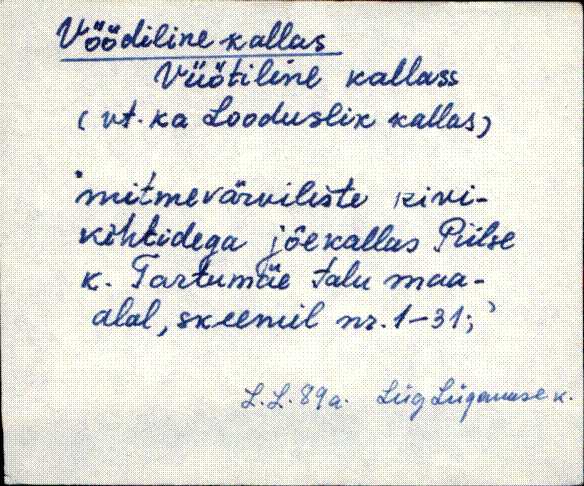 Vöödiline kallas
Vüötiline kallass
(vt. ka Looduslik kallas)
'mitmevärviliste kivi-
kihtidega jõekallas Püsse
k. Tartumäe talu maa-
alal, skeemil nr. 1-31;'
L.L. 89a. Lüg Lüganuse k.